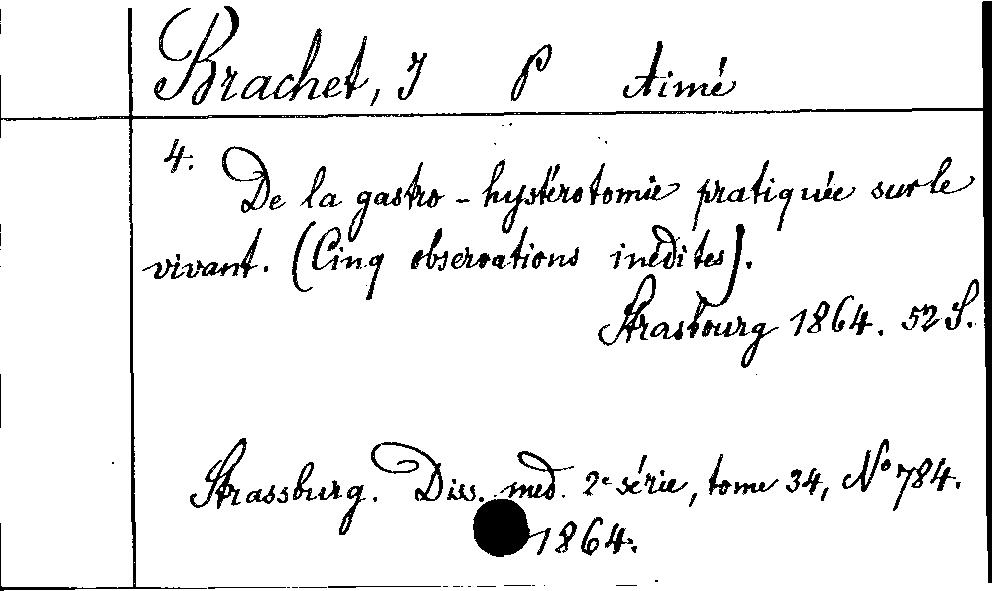 Brachet, J P Aimé
4. De la gastro-hystérotomie pratiquée sur le
vivant. (Cinq observations inédites).
Strasbourg 1864. 52 S.
Strassburg. Diss. med. 2e série, tome 34, No 784.
1864.